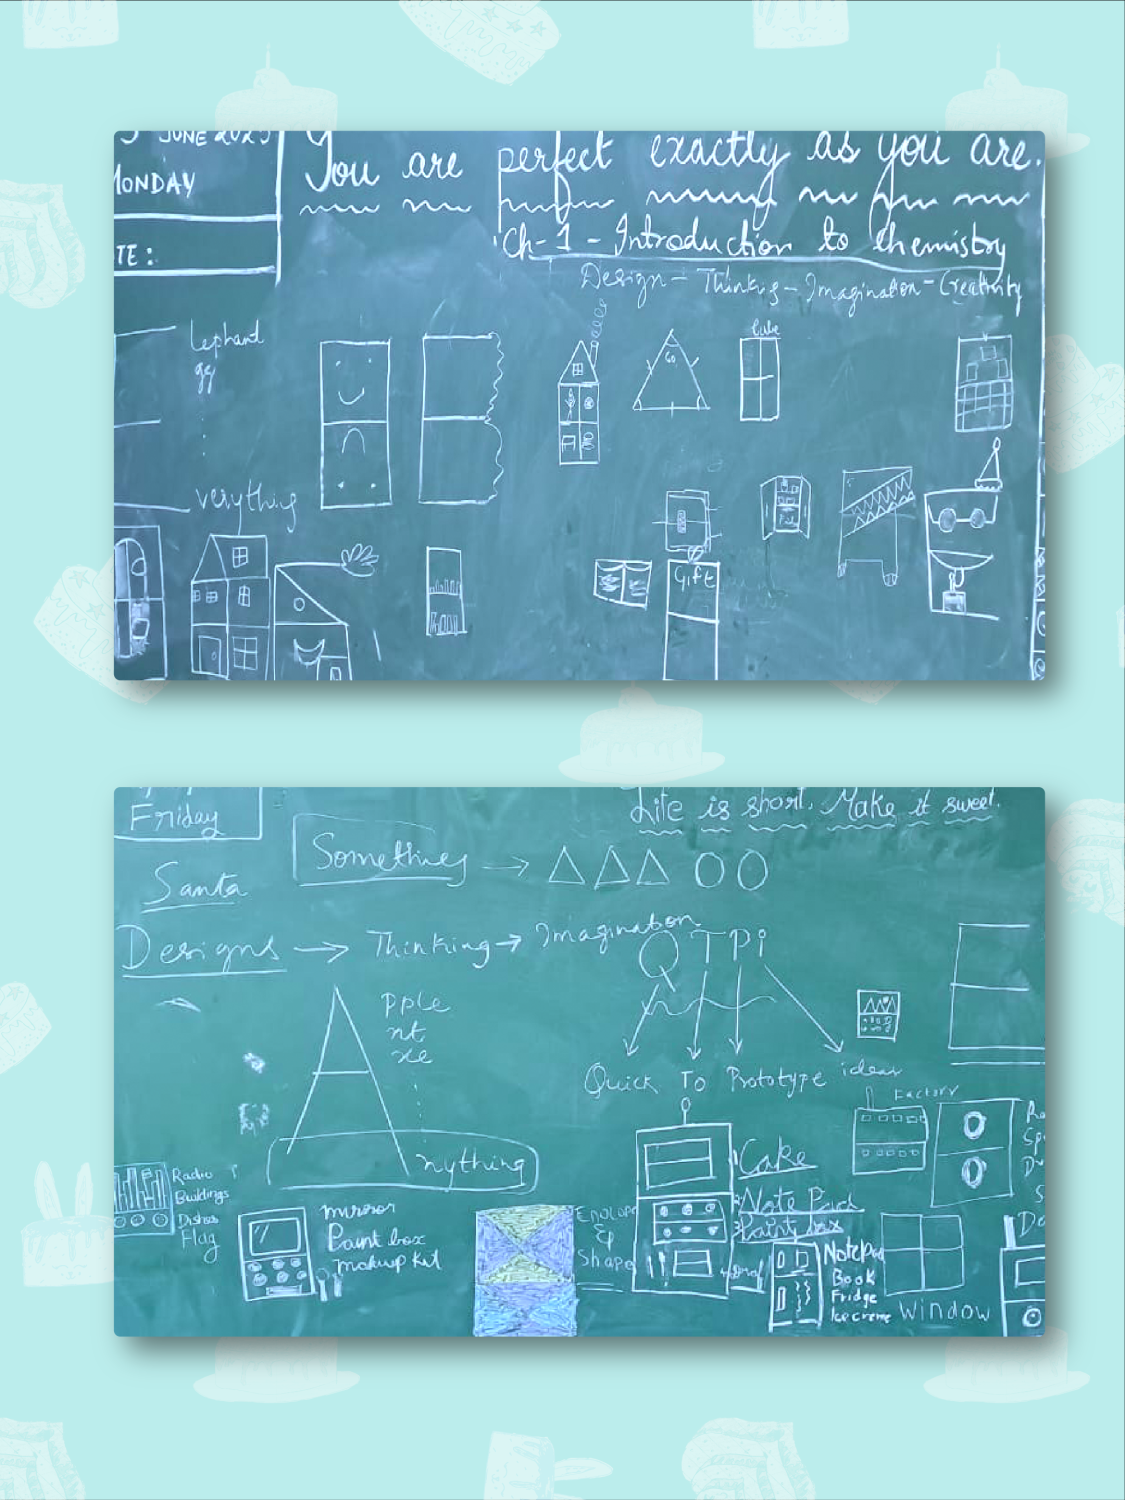 JUNE 2025
MONDAY
TE:
You are perfect exactly as you are.
Ch-1 - Introduction to Chemistry
Design - Thinking - Imagination - Creativity
lephant
gg
verything
Cube
60
Gift
Friday
Santa
Life is short. Make it sweet.
Something → △△△ OO
Designs → Thinking → Imagination
QTPi
A
pple
nt
xe
nything
Quick To Prototype ideas
Factory
Radio
Buildings
Dishes
Flag
mirror
Paint box
makeup kit
Envlope
&
Shape
Cake
Note Pad
Paint box
NotePad
Book
Fridge
Icecreme
WINDOW